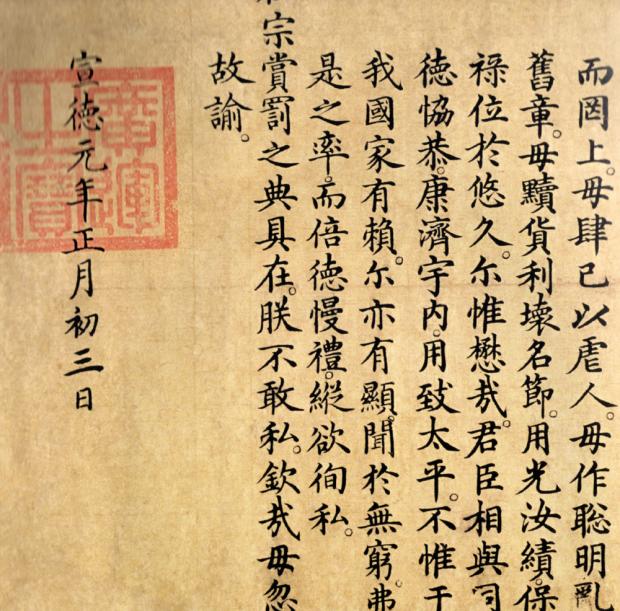 而罔上。毋肆己以虐人。毋作聰明亂
舊章。毋黷貨利壞名節。用光汝績。保
祿位於悠久。尓惟懋哉。君臣相與同
德恊恭。康濟宇内。用致太平。不惟于
我國家有賴。尓亦有顯。聞於無窮。弗
是之率。而倍德慢禮。縱欲徇私。
宗賞罰之典具在。朕不敢私。欽哉毋忽
故諭。
宣德元年正月初三日
廣運之寶